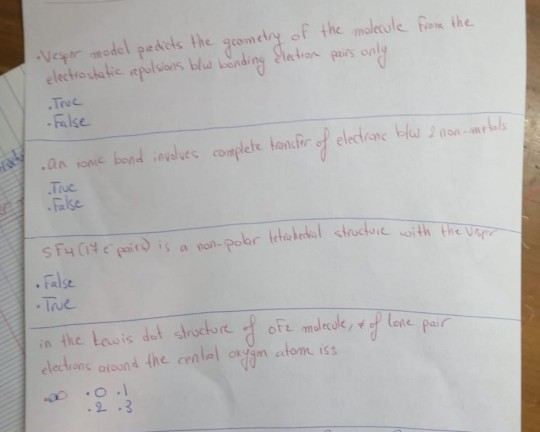 .Vespr model predicts the geometry of the molecule from the
electrostatic repulsions b/w bonding electron pairs only
.True
.False
.an ionic bond involves complete transfer of electrons b/w 2 non-metals
.True
.False
SF4 (17 e pairs) is a non-polar tetrahedral structure with the Vespr
.False
.True
in the Lewis dot structure of OF2 molecule, # of lone pair
electrons around the central oxygen atom is:
.0 .1
.2 .3